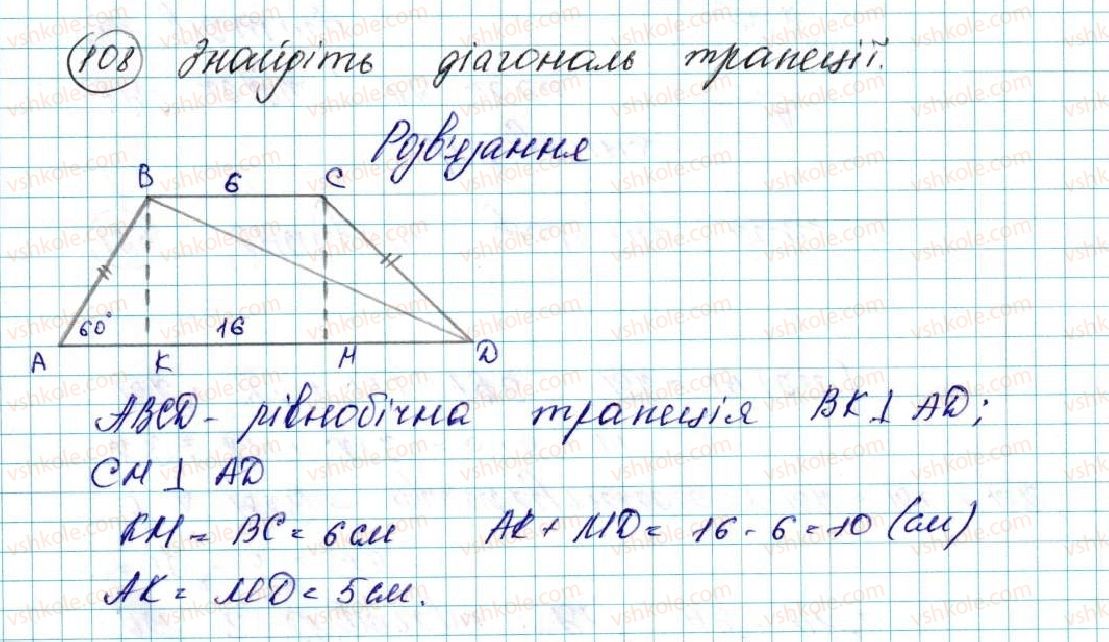 108 Знайдіть діагональ трапеції.
Розв'язання
B 6 C
60° 16
A K M D
ABCD - рівнобічна трапеція BK ⊥ AD;
CM ⊥ AD
KM = BC = 6 см AK + MD = 16 - 6 = 10 (см)
AK = MD = 5 см.
vshkole.com